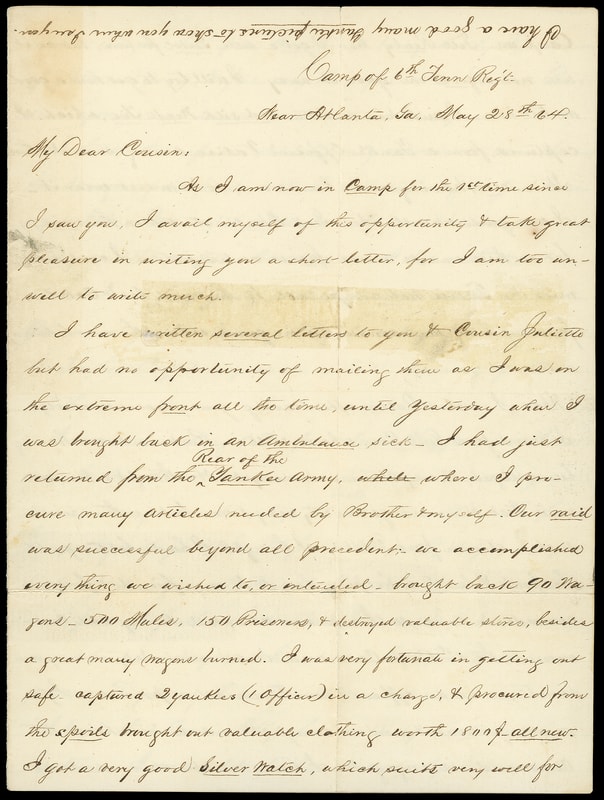 I have a good many Yankee pictures to show you when I see you.
Camp of 6th Tenn Regt.
Near Atlanta, Ga, May 28th 64.
My Dear Cousin:
As I am now in Camp for the 1st time since
I saw you, I avail myself of this opportunity & take great
pleasure in writing you a short letter, for I am too un-
well to write much.
I have written several letters to you & Cousin Juliette
but had no opportunity of mailing them as I was on
the extreme front all the time, until Yesterday when I
was brought back in an Ambulance sick – I had just
Rear of the
returned from the ^ Yankee Army, where I pro-
cure many articles needed by Brother & myself. Our raid
was successful beyond all precedent:- we accomplished
every thing we wished to, or intended – brought back 90 Wa-
gons – 500 Mules, 150 Prisoners, & destroyed valuable stores, besides
a great many wagons burned. I was very fortunate in getting out
safe – captured 2 yankees (1 Officer) in a charge, & procured from
the spoils brought out valuable clothing worth 1800$ all new.
I got a very good Silver Watch, which suits very well for